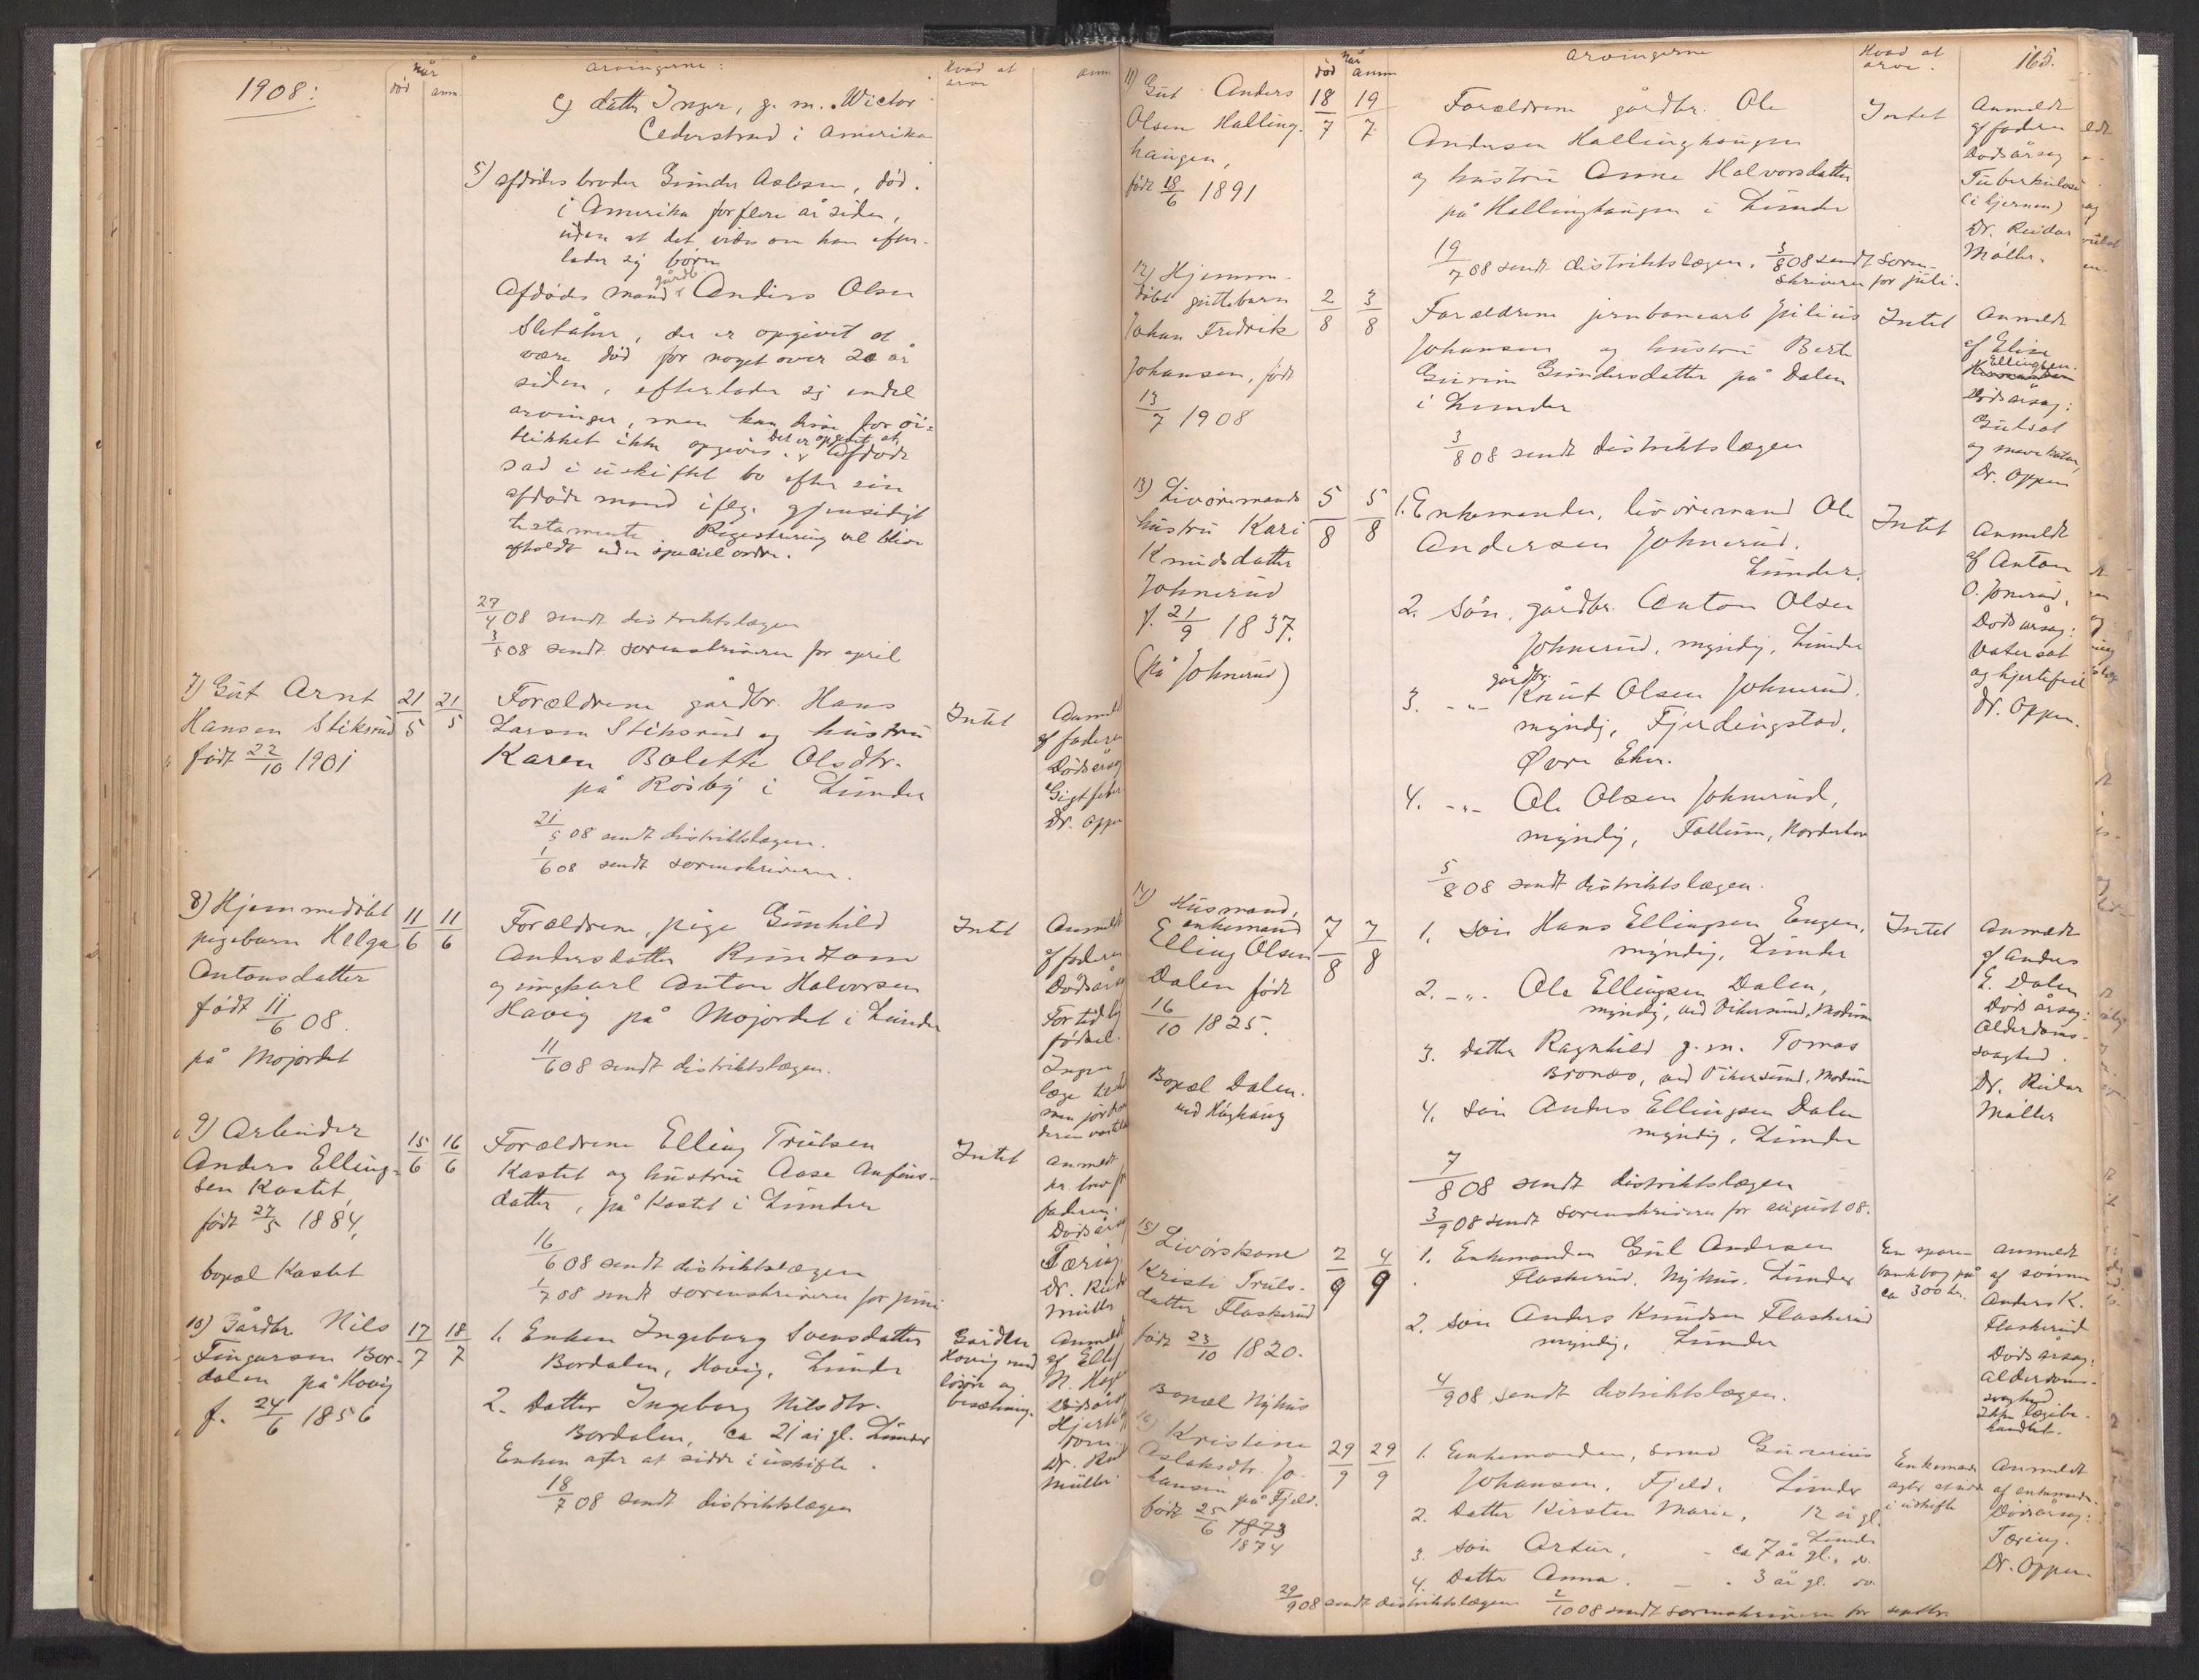 1908:
når
død anm.
arvingerne:
Hvad at arve
anm
c) datter Inger, g. m. Wictor
Cederstrand i Amerika
5) afdødes broder Gunder Aslesen, død.
i Amerika for flere år siden,
uden at det vides om han efter-
lader sig børn
Afdødes mand gårdb. Anders Olsen
Sletåhn, der er opgivet at
være død for noget over 20 år
siden, efterlader sig endel
arvinger, men kan disse for öi-
blikket ikke opgives. Det er opgivet, at afdøde
sad i uskiftet bo efter sin
afdøde mand ifølg. gjensidigt
testamente Registrering vil blive
afholdt uden speciel ordre.
27/4 08 sendt distriktslægen
3/5 08 sendt sorenskriveren for april
7) Gut Arnt
Hansen Stiksrud
født 22/10 1901
21/5 21/5
Forældrene gårdbr. Hans
Larsen Stiksrud og hustru
Karen Bolette Olsdtr.
på Rosby i Lunder
21/5 08 sendt distriktslægen.
1/6 08 sendt sorenskriveren.
Intet
Anmeldt
af faderen
Dødsårsag
Gigtfeber
Dr. Oppen
8) Hjemmedøbt
pigebarn Helga
Antonsdatter
født 11/6 08.
på Mojordet
11/6 11/6
Forældrene, pige Gunhild
Andersdatter Rundtom
og ungkarl Anton Halvorsen
Havig på Mojordet i Lunder
11/6 08 sendt distriktslægen.
Intet
Anmeldt
af faderen
Dødsårs
For tidlig
fødsel.
Ingen
læge
men jordmo
deren
9) Arbeider
Anders Elling-
sen Kastet,
født 27/5 1884,
bopæl Kastet
15/6 16/6
Forældrene Elling Trulsen
Kastet og hustru Aase Anfins-
datter, på Kastet i Lunder
16/6 08 sendt distriktslægen
1/7 08 sendt sorenskriveren for juni
Intet
anmeldt
pr. brev fr
faderen.
Dødsårs
Tæring
Dr. Reid
Müller
10) Gårdbr Nils
Fingarsen Bor-
dalen på Hovig
f. 24/6 1856
17/7 18/7
1. Enken Ingeborg Svensdatter
Bordalen, Hovig, Lunder
2. Datter Ingeborg Nilsdtr.
Bordalen, ca 21 år gl. Lunder
Enken agter at sidde i uskifte.
18/7 08 sendt distriktslægen
Gården
Hovig med
løsøre og
besætning.
Anmeldt
af Ellef
N. Hagl
Dødsårs
Hjerte
Dr. Reid
Müller
når
død anm
arvingerne
Hvad at arve.
165.
11) Gut Anders
Olsen Halling-
haugen,
født 18/6 1891
18/7 19/7
Forældrene gårdbr. Ole
Andersen Hallinghaugen
og hustru Anne Halvorsdatter
på Hallinghaugen i Lunder
19/7 08 sendt distriktslægen. 3/8 08 sendt soren-
skriveren for juli.
Intet
Anmeldt
af faderen
Dødsårsag
Tuberkulose
(i hjernen)
Dr. Reidar
Møller.
12) Hjemme-
døbt guttebarn
Johan Fredrik
Johansen, født
13/7 1908
2/8 3/8
Forældrene jernbanearb Julius
Johansen og hustru Berte
Gurine Gundersdatter på Dalen
i Lunder
3/8 08 sendt distriktslægen
Intet
Anmeldt
af Elise
Ellingsen.
Dødsårsag:
Gulsot
og mavekatar,
Dr. Oppen
13) Livøremands
hustru Kari
Knudsdatter
Johnsrud
f. 21/9 1837.
(på Johnsrud)
5/8 5/8
1. Enkemanden, livøremand Ole
Andersen Johnsrud.
Lunder.
2. Søn, gårdbr. Anton Olsen
Johnsrud, myndig, Lunder
3. -"- gårdbr. Knut Olsen Johnsrud.
myndig, Fjerdingstad,
Øvre Eker.
4. -"- Ole Olsen Johnsrud,
myndig, Follum, Norderhov
5/8 08 sendt distriktslægen.
Intet
Anmeldt
af Anton
O. Jonsrud,
Dødsårsag:
Vatersot
og hjertefeil
Dr. Oppen.
14) Husmand,
enkemand
Elling Olsen
Dalen født
16/10 1825.
Bopæl Dalen.
ved Høghaug
7/8 7/8
1. Søn Hans Ellingsen Eugen,
myndig, Lunder
2. -"- Ole Ellingsen Dalen,
myndig, ved Vikersund, Modum
3. Datter Ragnhild g. m. Tomas
Bronæs, ved Vikersund, Modum
4. Søn Anders Ellingsen Dalen
myndig, Lunder
7/8 08 sendt distriktslægen
3/9 08 sendt sorenskriveren for august 08.
Intet
Anmeldt
af Anders
E. Dalen
Dødsårsag:
Alderdoms-
svaghed.
Dr. Reidar
Müller
15) Livörskone
Kristi Truls-
datter Flaskerud
født 23/10 1820.
Bopæl Nyhus
2/9 4/9
1. Enkemanden Gul Andersen
Flaskerud. Nyhus. Lunder
2. Søn Anders Knudsen Flaskerud
myndig, Lunder
4/9 08 sendt distriktslægen.
En spare-
bankbog på
ca 300 kr.
Anmeldt
af sönnen
Anders K.
Flaskerud
Dødsårsag:
Alderdoms-
svaghed
Ikke lægebe-
handlet.
16) Kristine
Aslaksdtr. Jo-
hansen på Fjeld.
født 25/6 1873
1874
29/9 29/9
1. Enkemanden, smed Gunerius
Johansen. Fjeld. Lunder
2. Datter Kirsten Marie, 12 år gl.
Lunder
3. Søn Artur, - ca 7 år gl., do.
4. Datter Anna. - - 3 år gl. do.
29/9 08 sendt distriktslægen 2/10 08 sendt sorenskriveren for septbr.
Enkemand
agter at sidde
i uskifte
Anmeldt
af enkemanden.
Dödsårsag:
Tæring.
Dr. Oppen.